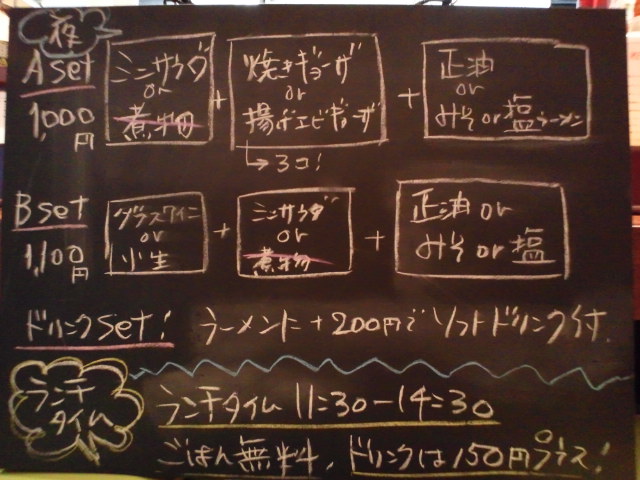 夜
A set
1,000円
ミニサラダ
or
煮物
+
焼きギョーザ
or
揚げエビギョーザ
→3コ!
+
正油
or
みそ or 塩ラーメン
B set
1,100円
グラスワイン
or
小生
+
ミニサラダ
or
煮物
+
正油 or
みそ or 塩
ドリンクset! ラーメンに+200円でソフトドリンク付.
ランチタイム
ランチタイム 11:30-14:30
ごはん無料、ドリンクは150円プラス!